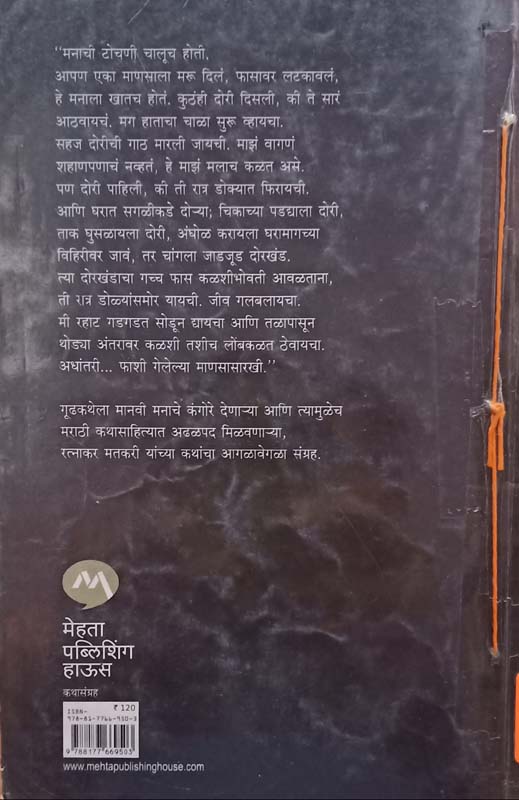 “मनाची टोचणी चालूच होती.
आपण एका माणसाला मरू दिलं, फासावर लटकावलं,
हे मनाला खातच होतं. कुठंही दोरी दिसली, की ते सारं
आठवायचं. मग हाताचा चाळा सुरू व्हायचा.
सहज दोरीची गाठ मारली जायची. माझं वागणं
शहाणपणाचं नव्हतं, हे माझं मलाच कळत असे.
पण दोरी पाहिली, की ती रात्र डोक्यात फिरायची.
आणि घरात सगळीकडे दोऱ्या; चिकाच्या पडद्याला दोरी,
ताक घुसळायला दोरी, अंघोळ करायला घरामागच्या
विहिरीवर जावं, तर चांगला जाडजूड दोरखंड.
त्या दोरखंडाचा गच्च फास कळशीभोवती आवळताना,
ती रात्र डोळ्यांसमोर यायची. जीव गलबलायचा.
मी रहाट गडगडत सोडून द्यायचा आणि तळापासून
थोड्या अंतरावर कळशी तशीच लोंबकळत ठेवायचा.
अधांतरी... फाशी गेलेल्या माणसासारखी.”
गूढकथेला मानवी मनाचे कंगोरे देणाऱ्या आणि त्यामुळेच
मराठी कथासाहित्यात अढळपद मिळवणाऱ्या,
रत्नाकर मतकरी यांच्या कथांचा आगळावेगळा संग्रह.
मेहता
पब्लिशिंग
हाऊस
कथासंग्रह
ISBN- ₹ 120
978-81-7766-950-3
9 788177 669503
www.mehtapublishinghouse.com